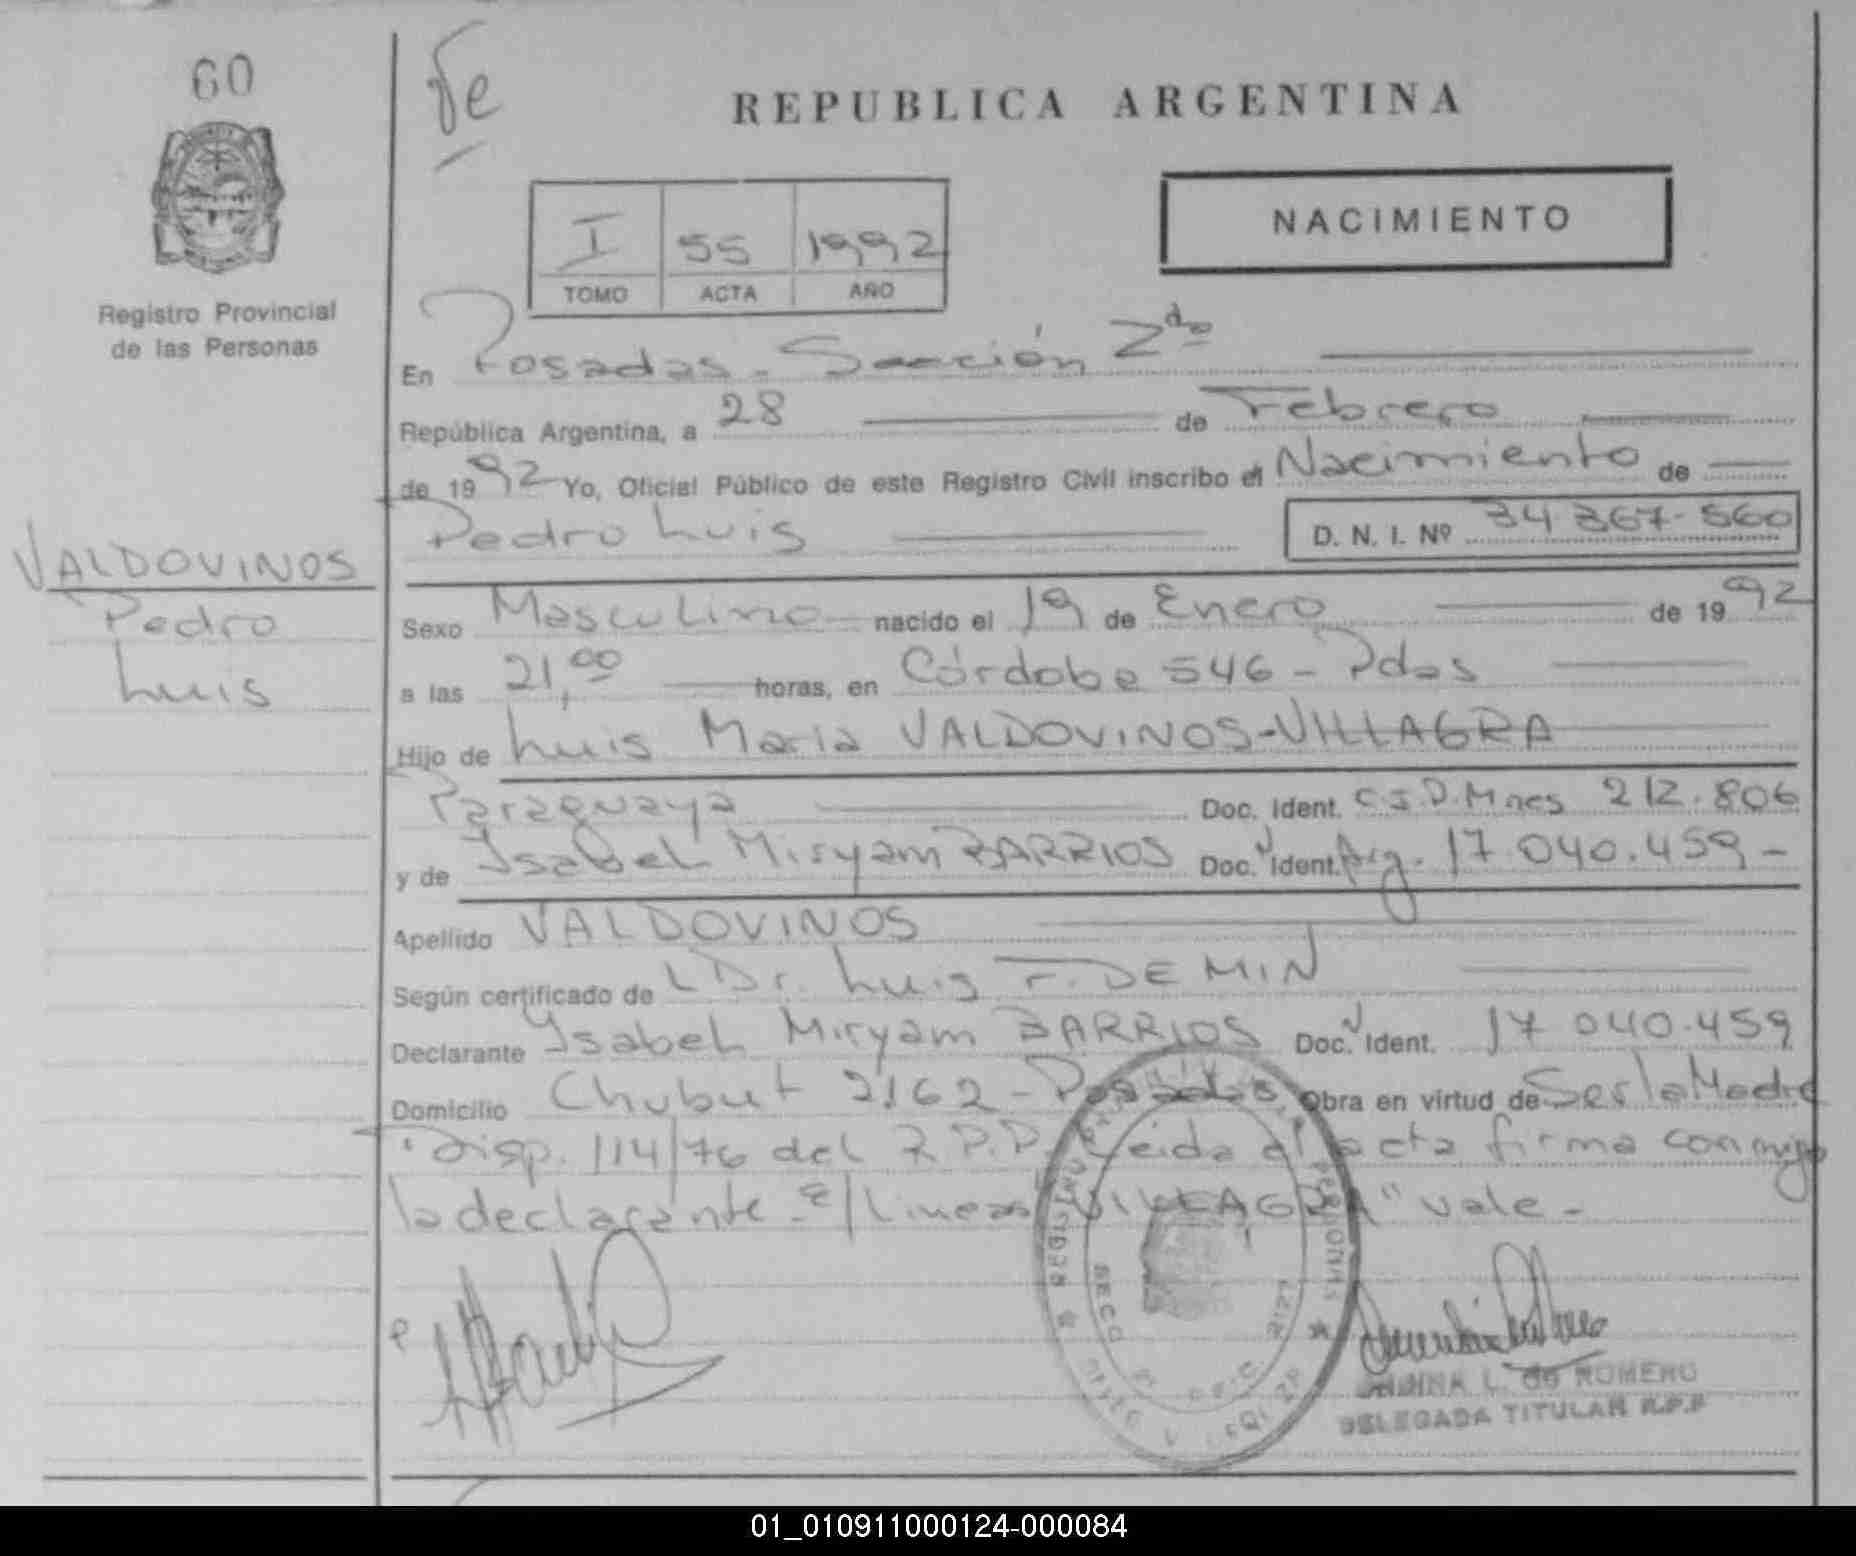 60
REPUBLICA ARGENTINA
I 55 1992
TOMO ACTA AÑO
NACIMIENTO
Registro Provincial
de las Personas
En Posadas - Sección 2da
República Argentina, a 28 de Febrero
de 1992 Yo, Oficial Público de este Registro Civil inscribo el Nacimiento de
Pedro Luis D. N. I. Nº 34.367.560
VALDOVINOS
Pedro
Luis
Sexo Masculino nacido el 19 de Enero de 1992
a las 21,00 horas, en Córdoba 546 - Pdas
Hijo de Luis Maria VALDOVINOS-VILLAGRA
Paraguaya Doc. Ident. C.I.P.Mnes 212.806
y de Ysabel Miryam BARRIOS Doc. Ident. Arg. 17.040.459-
Apellido VALDOVINOS
Según certificado de L Dr. Luis F. DE MIN
Declarante Ysabel Miryam BARRIOS Doc. Ident. 17.040.459
Domicilio Chubut 2162 - Posadas. Obra en virtud de Ser la Madre
Disp. 114/76 del R.P.P. Leida el acta firma conmigo
la declarante - E/Lineas "VILLAGRA" vale -
REGISTRO PERSONAS
SECC
L. de ROMERO
DELEGADA TITULAR R.P.P
01_010911000124-000084